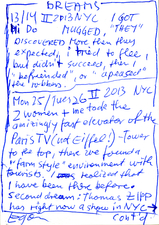 DREAMS
13/14 II 2013 NYC I GOT
Hi Do MUGGED, "THEY"
DISCOVERED More then they
expected, i tried to flee,
but didn't succeed, then I
"befriended" or "apeased"
the robbers.
Mon 25/Tues 26 II 2013 NYC
2 women + me took the
amazingly fast elevator of the
Paris TV (and Eiffel!) - Tower
to the top, there we found a
"farm style" environment with
tourists. I realized that
I have been there before.
Second dream: Thomas ZIPP
has right now a show in NYC →
cont'd